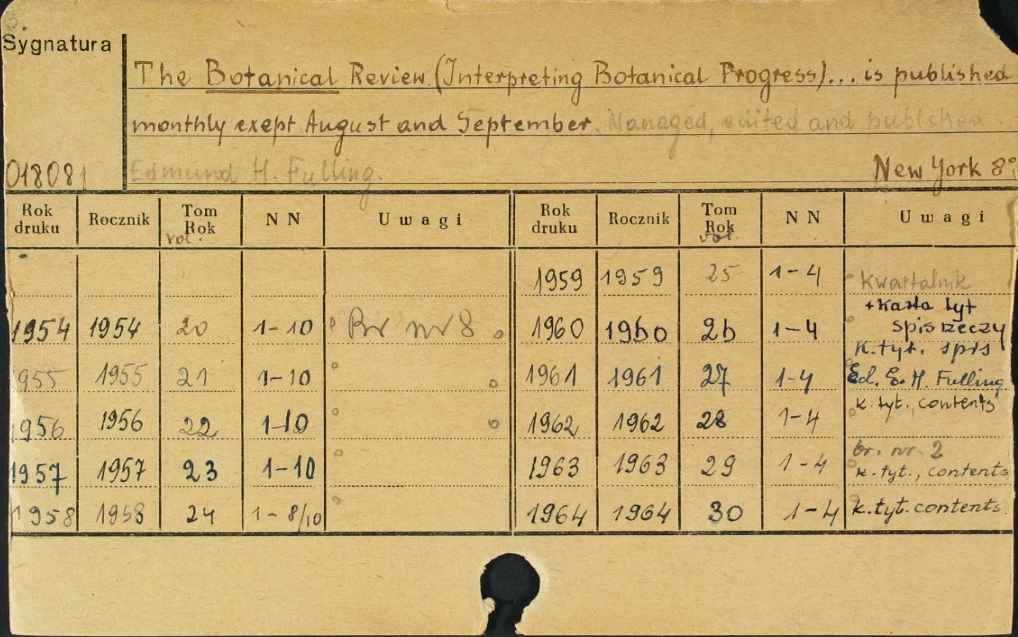 Sygnatura
The Botanical Review (Interpreting Botanical Progress)... is published
monthly exept August and September. Managed, edited and publshed
018081 Edmund H. Fulling. New York 8°
Rok druku Rocznik Tom Rok vol. N N Uwagi Rok druku Rocznik Tom Rok vol. N N Uwagi
1959 1959 25 1-4 Kwartalnik
1954 1954 20 1-10 Br nr 8 1960 1960 26 1-4 + karta tyt spis rzeczy
k.tyt. spis
1955 1955 21 1-10 1961 1961 27 1-4 Ed. E. H. Fulling
k.tyt. contents
1956 1956 22 1-10 1962 1962 28 1-4
1957 1957 23 1-10 1963 1963 29 1-4 br. nr. 2 k.tyt., contents
1958 1958 24 1-8/10 1964 1964 30 1-4 k.tyt. contents